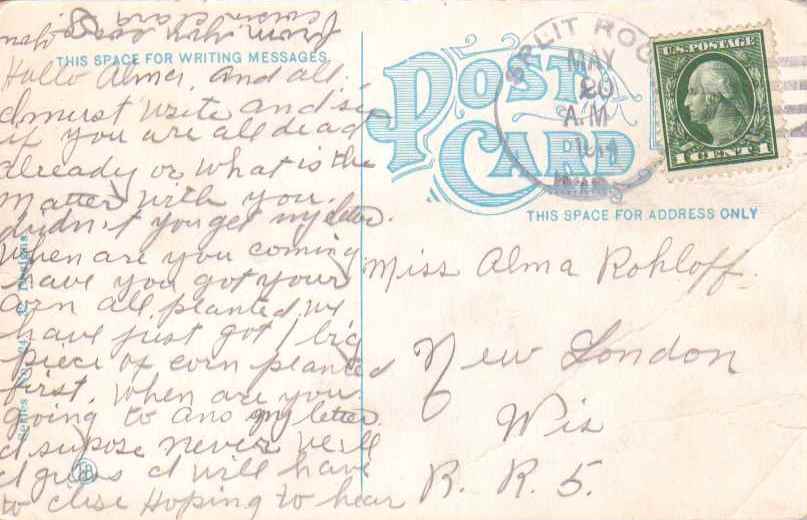 THIS SPACE FOR WRITING MESSAGES.
Hallo Alma, and all.
I must write and see
if you are all dead
already or what is the
matter with you.
didn't you get my letter.
When are you coming
have you got your
corn all planted, we
have just got 1 big
piece of corn planted
first. When are you
going to ans my letter.
I supose never well
I guess I will have
to close Hoping to hear
from you soon
POST CARD
SPLIT ROC
MAY
20
A.M.
WIS
U.S. POSTAGE
1 CENT 1
THIS SPACE FOR ADDRESS ONLY
Miss Alma Rohloff.
New London
Wis
R. R. 5.
Series No.
Designs